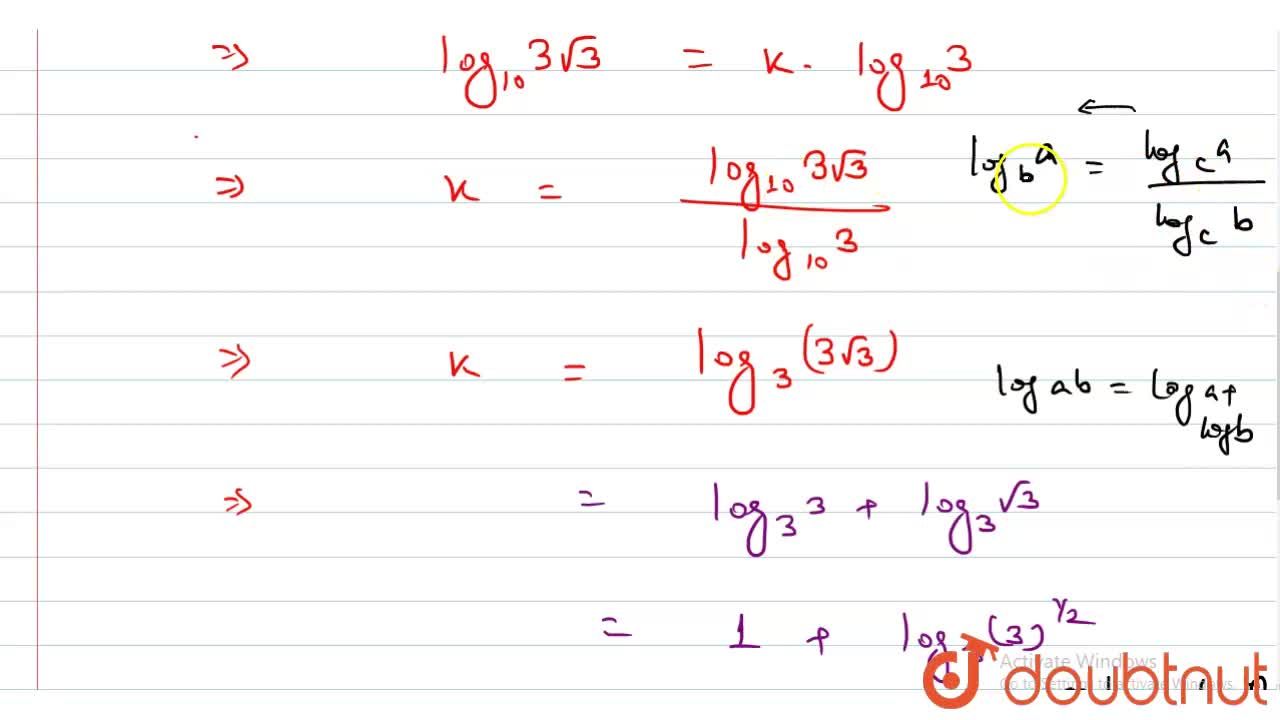 ⇒ log₁₀ 3√3 = K · log₁₀ 3
⇒ K = log₁₀ 3√3 / log₁₀ 3
log_b a = log_c a / log_c b
⇒ K = log₃ (3√3)
log ab = log a + log b
⇒ = log₃ 3 + log₃ √3
= 1 + log₃ (3)^1/2
Activate Windows
Go to Settings to activate Windows.
doubtnut